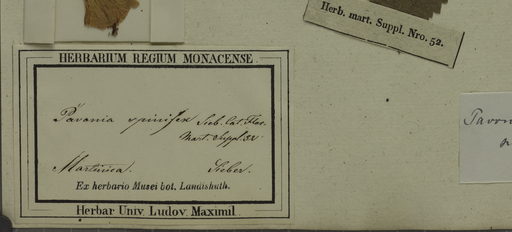 Herb. mart. Suppl. Nro. 52.
HERBARIUM REGIUM MONACENSE.
Pavonia spinifex Sieb. Cat. Flor.
Mart. Suppl. 52.
Martinica. Sieber.
Ex herbario Musei bot. Landishuth.
Herbar Univ. Ludov. Maximil.
Pavon